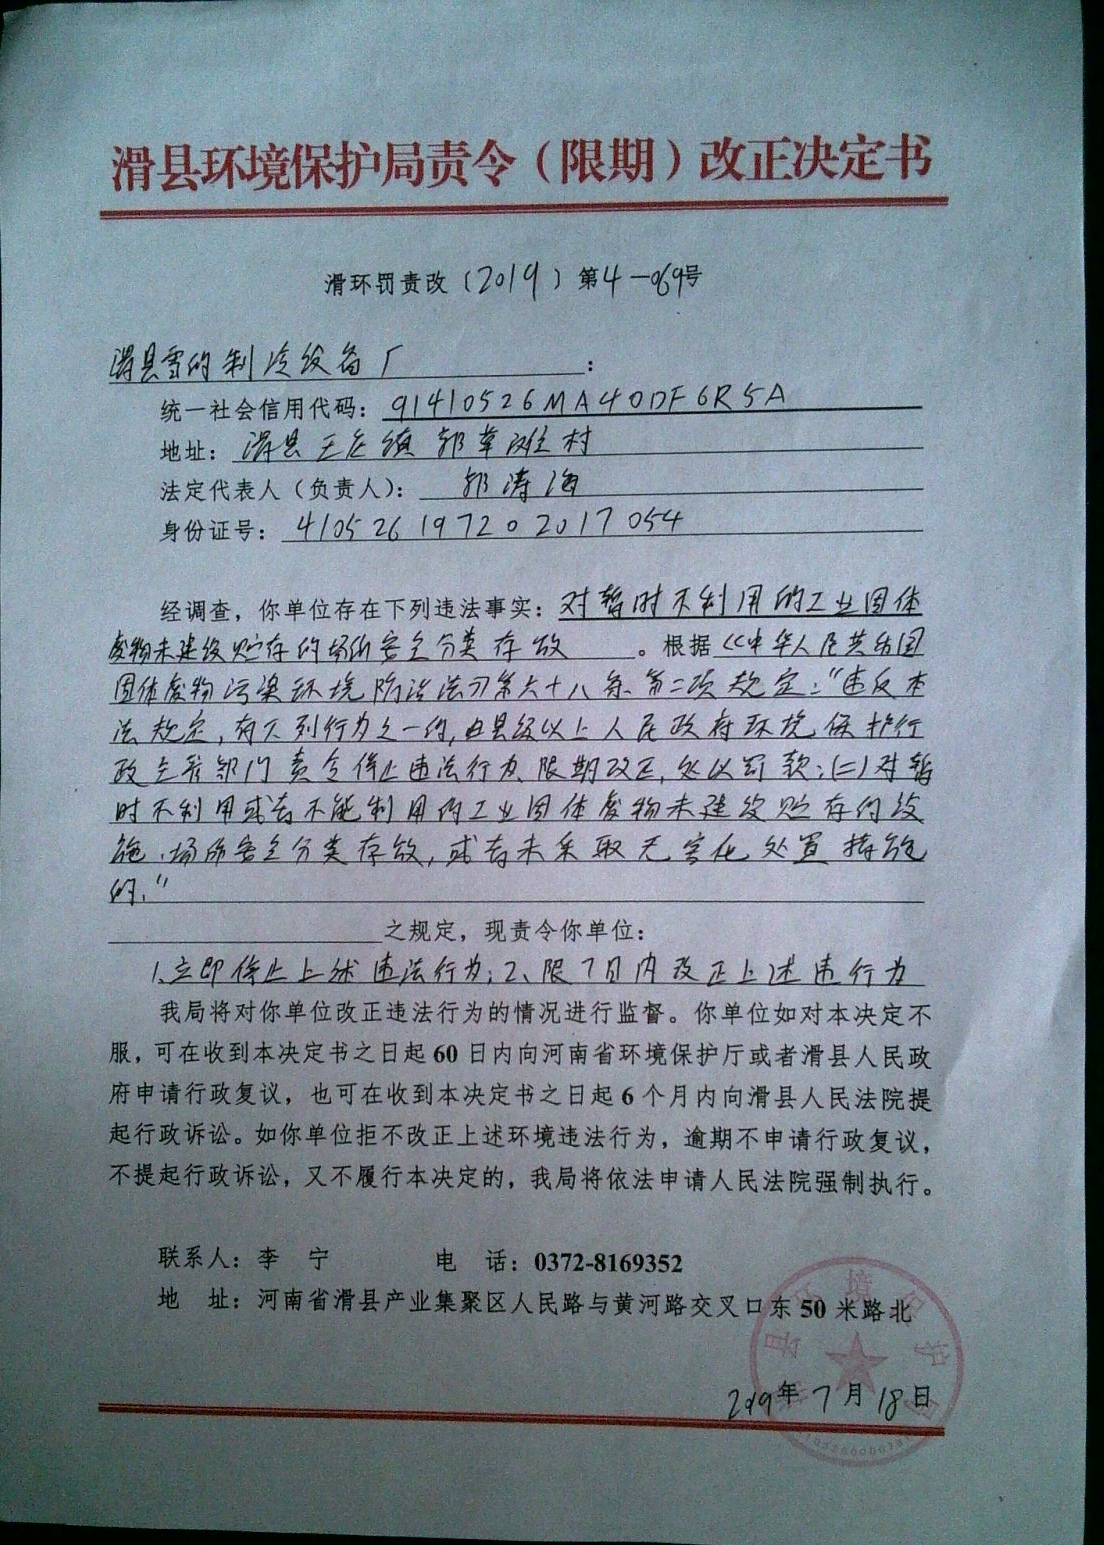 滑县环境保护局责令（限期）改正决定书
滑环罚责改（2019）第4-069号
滑县雪的制冷设备厂：
统一社会信用代码：91410526MA40DF6R5A
地址：滑县王庄镇郭草滩村
法定代表人（负责人）：郭涛海
身份证号：410526197202017054
经调查，你单位存在下列违法事实：对暂时不利用的工业固体
废物未建设贮存的场所安全分类存放。根据《中华人民共和国
固体废物污染环境防治法》第六十八条、第二项规定：“违反本
法规定，有下列行为之一的，由县级以上人民政府环境保护行
政主管部门责令停止违法行为、限期改正，处以罚款：（二）对暂
时不利用或者不能利用的工业固体废物未建设贮存的设
施、场所安全分类存放，或者未采取无害化处置措施
的。”
之规定，现责令你单位：
1、立即停止上述违法行为；2、限7日内改正上述违行为
我局将对你单位改正违法行为的情况进行监督。你单位如对本决定不
服，可在收到本决定书之日起60日内向河南省环境保护厅或者滑县人民政
府申请行政复议，也可在收到本决定书之日起6个月内向滑县人民法院提
起行政诉讼。如你单位拒不改正上述环境违法行为，逾期不申请行政复议，
不提起行政诉讼，又不履行本决定的，我局将依法申请人民法院强制执行。
联系人：李 宁 电 话：0372-8169352
地 址：河南省滑县产业集聚区人民路与黄河路交叉口东50米路北
滑县环境保护局
2019年7月18日